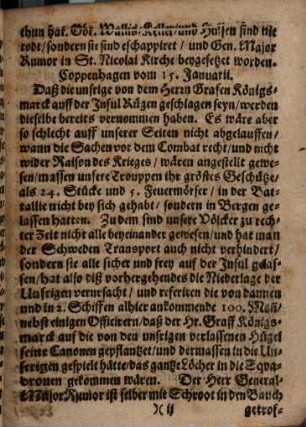 thun hat. Obr. Wallis, Keller und Hussen sind nit
todt/ sondern sie sind eschappiret/ und Gen. Major
Rumor in St. Nicolai Kirche beygesetzt worden.
Coppenhagen vom 15. Januarii.
Daß die unsrige von dem Herrn Grafen Königs-
marck auff der Insul Rügen geschlagen seyn/ werden
dieselbe bereits vernommen haben. Es wäre aber
so schlecht auff unserer Seiten nicht abgelauffen/
wann die Sachen vor dem Combat recht/ und nicht
wider Raison des Krieges/ wären angestellt gewe-
sen/ massen unsere Trouppen ihr gröstes Geschütze/
als 24. Stücke und 5. Feuermörser/ in der Bat-
tallie nicht bey sich gehabt/ sondern in Bergen ge-
lassen hatten. Zu dem sind unsere Völcker zu rech-
ter Zeit nicht alle beyeinander gewesen/ und hat man
der Schweden Transport auch nicht verhindert/
sondern sie alle sicher und frey auf der Insul gelas-
sen/ hat also diß vorhergehendes die Niederlage der
Unsrigen verursacht/ und referiren die von dannen
und in 2. Schiffen alhier ankommende 100. Man/
nebst einigen Officirern/ daß der Hr. Graff Königs-
marck auf die von den unsrigen verlassenen Hügel
seine Canonen gepflantzet/ und dermassen in die Un-
serigen gespielt hätte/ das gantze Löcher in die Sqva-
dronen gekommen wären. Der Herr General-
Major Rumor ist selber mit Schroot in den Bauch
)( ij getrof-